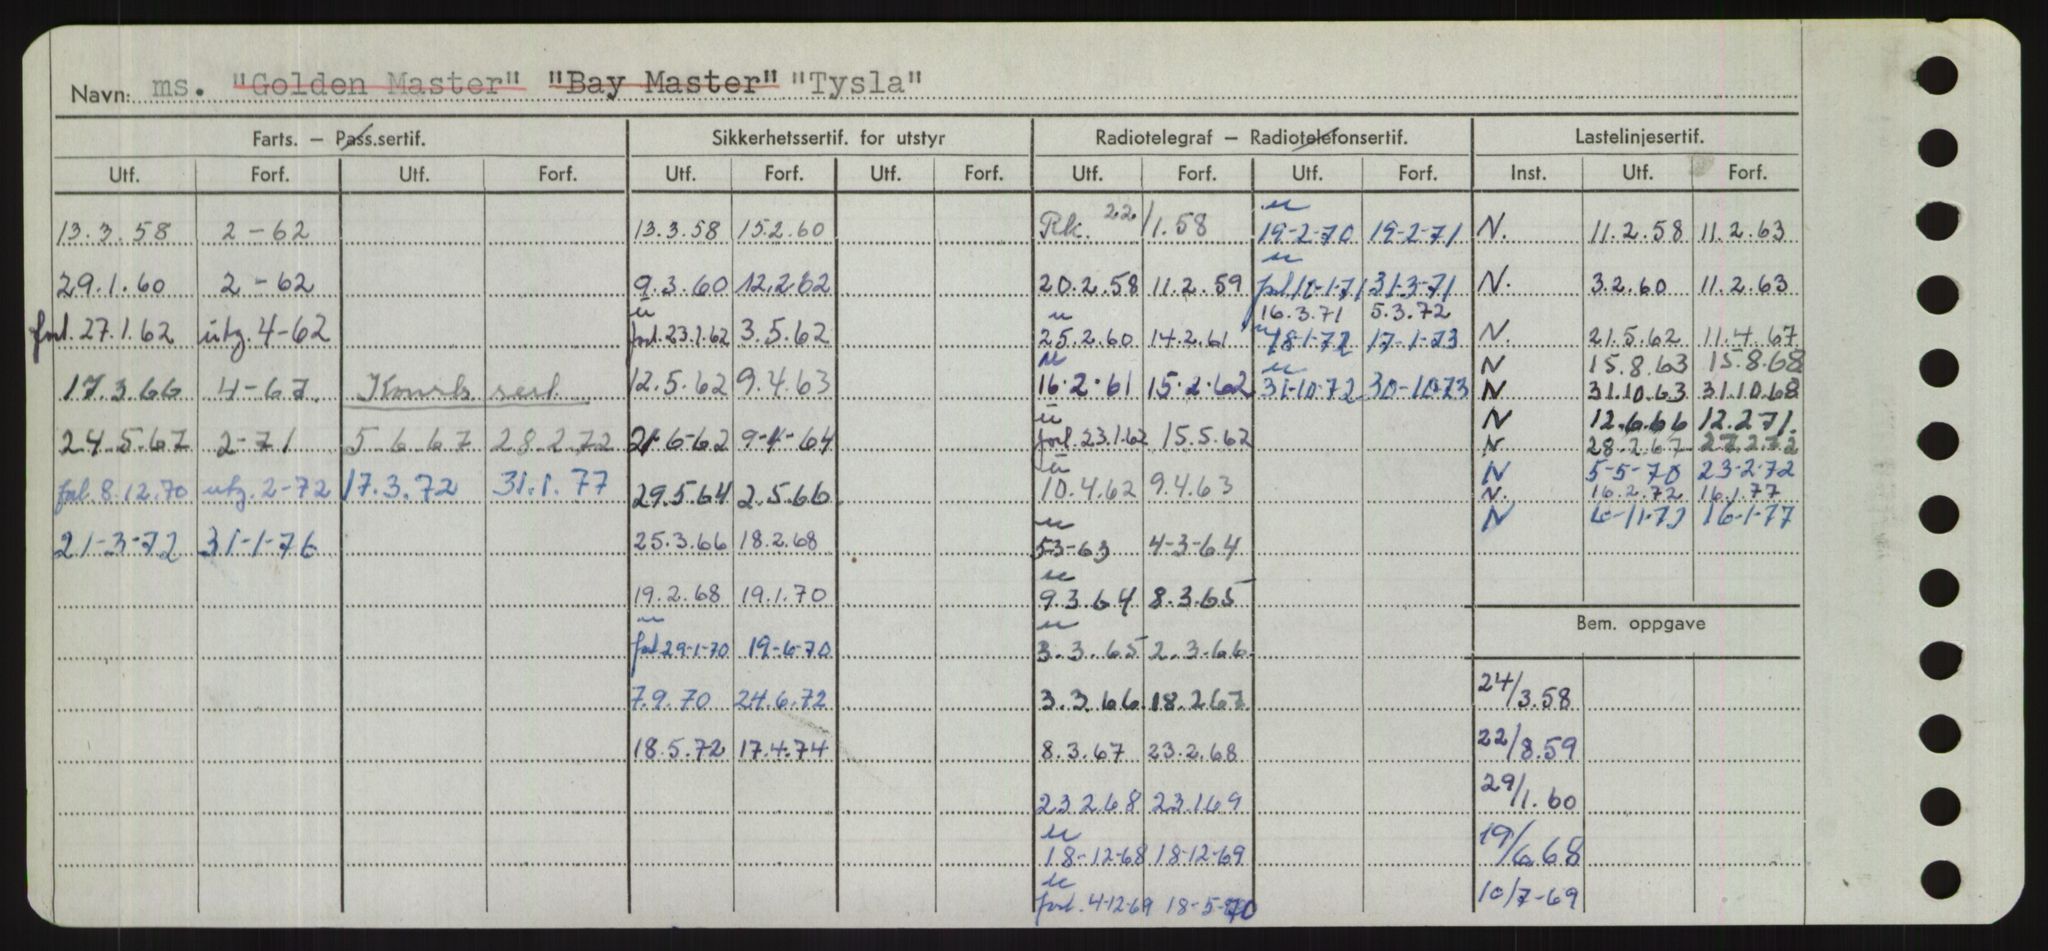 Navn: ms. "Golden Master" "Bay Master" "Tysla"
Farts. — Pass.sertif. Sikkerhetssertif. for utstyr Radiotelegraf — Radiotelefonsertif. Lastelinjesertif.
Utf. Forf. Utf. Forf. Utf. Forf. Utf. Forf. Utf. Forf. Utf. Forf. Inst. Utf. Forf.
13.3.58 2-62 13.3.58 15.2.60 Rk. 22/1.58 19-2-70 19-2-71 N. 11.2.58 11.2.63
29.1.60 2-62 9.3.60 12.2.62 20.2.58 11.2.59 31-3-71 N. 3.2.60 11.2.63
16.3.71 5.3.72
forl. 27.1.62 utg. 4-62 forl. 23.1.62 3.5.62 25.2.60 14.2.61 18-1-72 17-1-73 N. 21.5.62 11.4.67
N 15.8.63 15.8.68
17.3.66 4-67. 12.5.62 9.4.63 16.2.61 15.2.62 31-10-72 30-10-73 N 31.10.63 31.10.68
N 12.6.66 12.2.71.
24.5.67 2-71 5.6.67 28.2.72 21-6-62 9-4-64 forl. 23.1.62 15.5.62 N 28.2.67 27.2.72
N 5-5-70 23-2-72
forl. 8.12.70 utg. 2-72 17.3.72 31.1.77 29.5.64 2.5.66. 10.4.62 9.4.63 N. 16.2.72 16.1.77
N 16-1-77
21-3-72 31-1-76 25.3.66 18.2.68 5-3-63 4-3-64
19.2.68 19.1.70 9.3.64 8.3.65
Bem. oppgave
forl 29-1-70 19-6-70 3.3.65 2.3.66
7.9.70 24.6.72 3.3.66 18.2.67 24/3.58
18.5.72 17.4.74 8.3.67 23.2.68 22/8.59
23.2.68 23.1.69 29/1.60
18-12-68 18-12-69 19/6.68
forl. 4-12-69 18-5-70 10/7-69